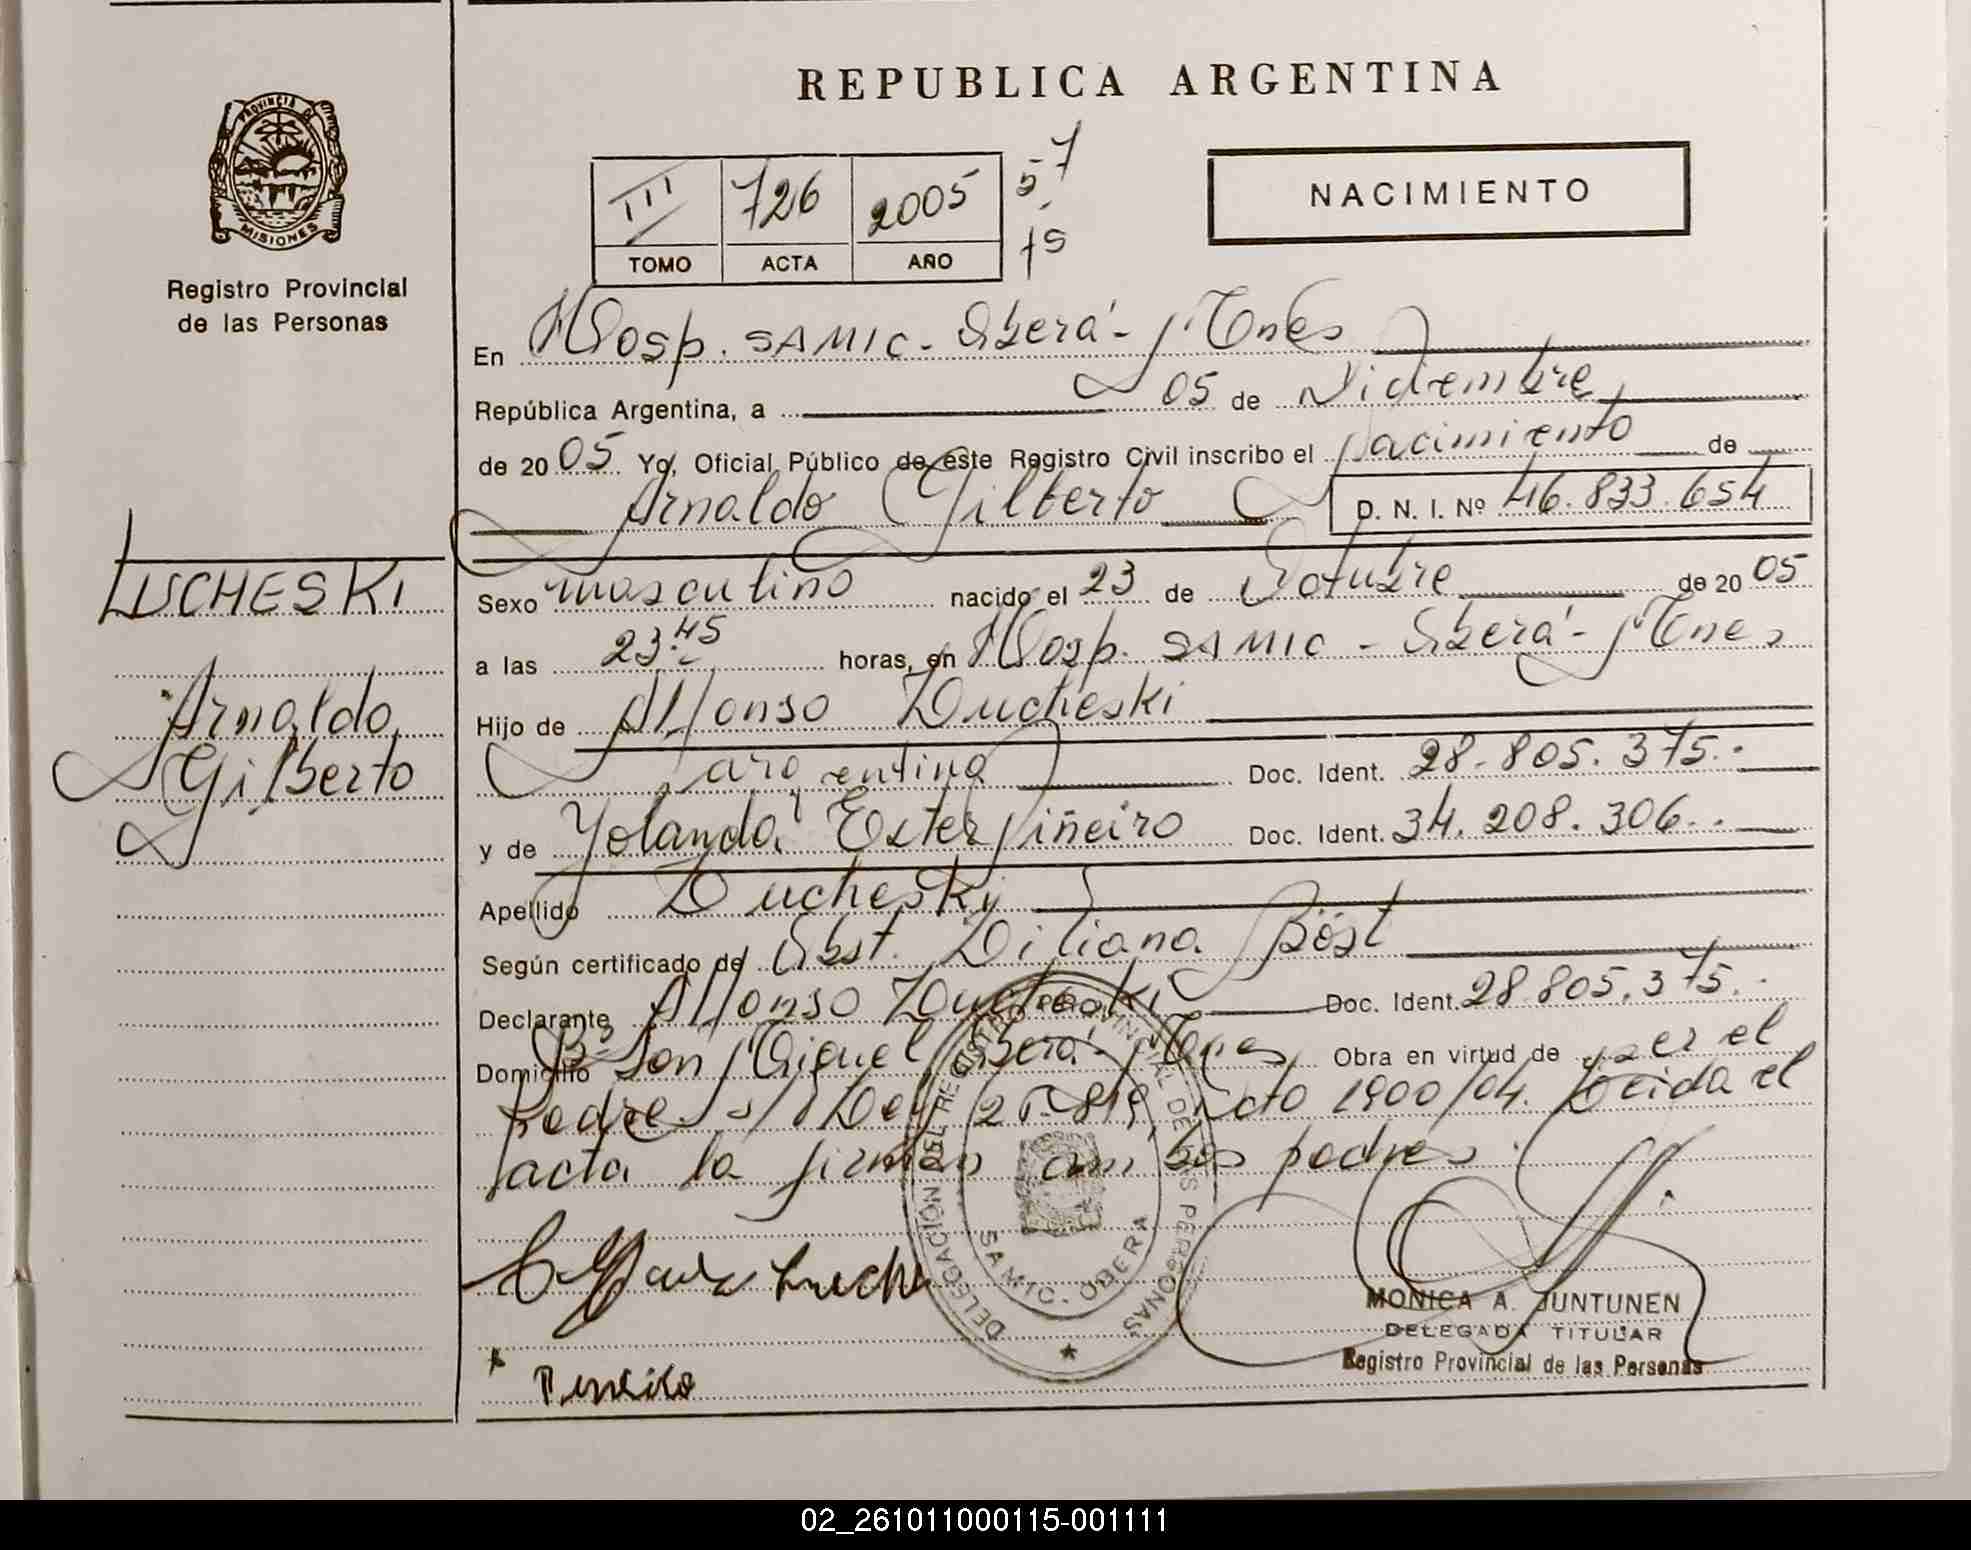 REPUBLICA ARGENTINA
PROVINCIA DE
MISIONES
Registro Provincial
de las Personas
III 726 2005
TOMO ACTA AÑO
57
75
NACIMIENTO
En Hosp. SAMIC - Oberá - Mnes
República Argentina, a 05 de Diciembre
de 2005 Yo, Oficial Público de este Registro Civil inscribo el nacimiento de
Arnaldo Gilberto D. N. I. Nº 46.833.654
LUCHESKI
Arnaldo
Gilberto
Sexo masculino nacido el 23 de Octubre de 2005
a las 23.45 horas, en Hosp. SAMIC - Oberá - Mnes
Hijo de Alfonso Lucheski
argentino Doc. Ident. 28.805.375.-
y de Yolanda Ester Piñeiro Doc. Ident. 34.208.306.-
Apellido Lucheski
Según certificado de Obst. Liliana Böst
Declarante Alfonso Lucheski Doc. Ident. 28.805.375.-
Domicilio Bº San Miguel Oberá - Mnes Obra en virtud de ser el
padre s/ Ley 25.819, Dcto 1900/04. Leida el
acta la firman ambos padres.
DELEGACIÓN DEL REGISTRO PROVINCIAL DE LAS PERSONAS
SAMIC - OBERA
MONICA A. JUNTUNEN
DELEGADA TITULAR
Registro Provincial de las Personas
02_261011000115-001111